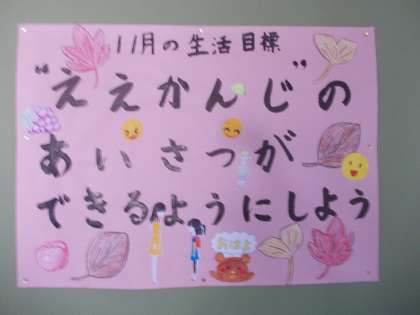 11月の生活目標
“ええかんじ”の
あいさつが
できるようにしよう
おはよう